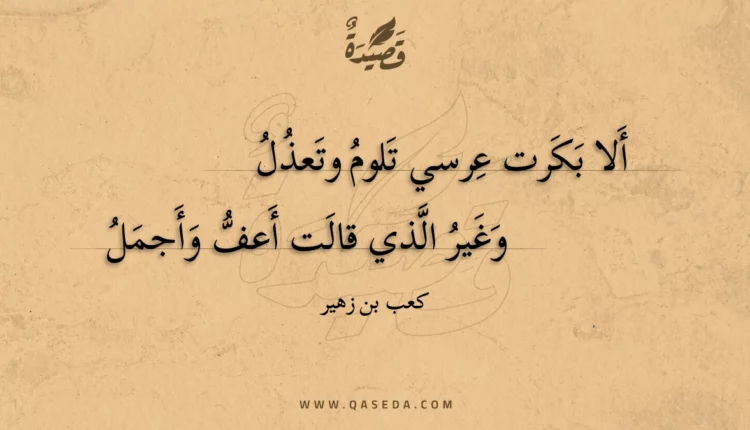 قَصِيدَةٌ
أَلا بَكَرَت عِرسي تَلومُ وتَعذُلُ
وَغَيرُ الَّذي قالَت أَعفُّ وَأَجمَلُ
كعب بن زهير
WWW.QASEDA.COM